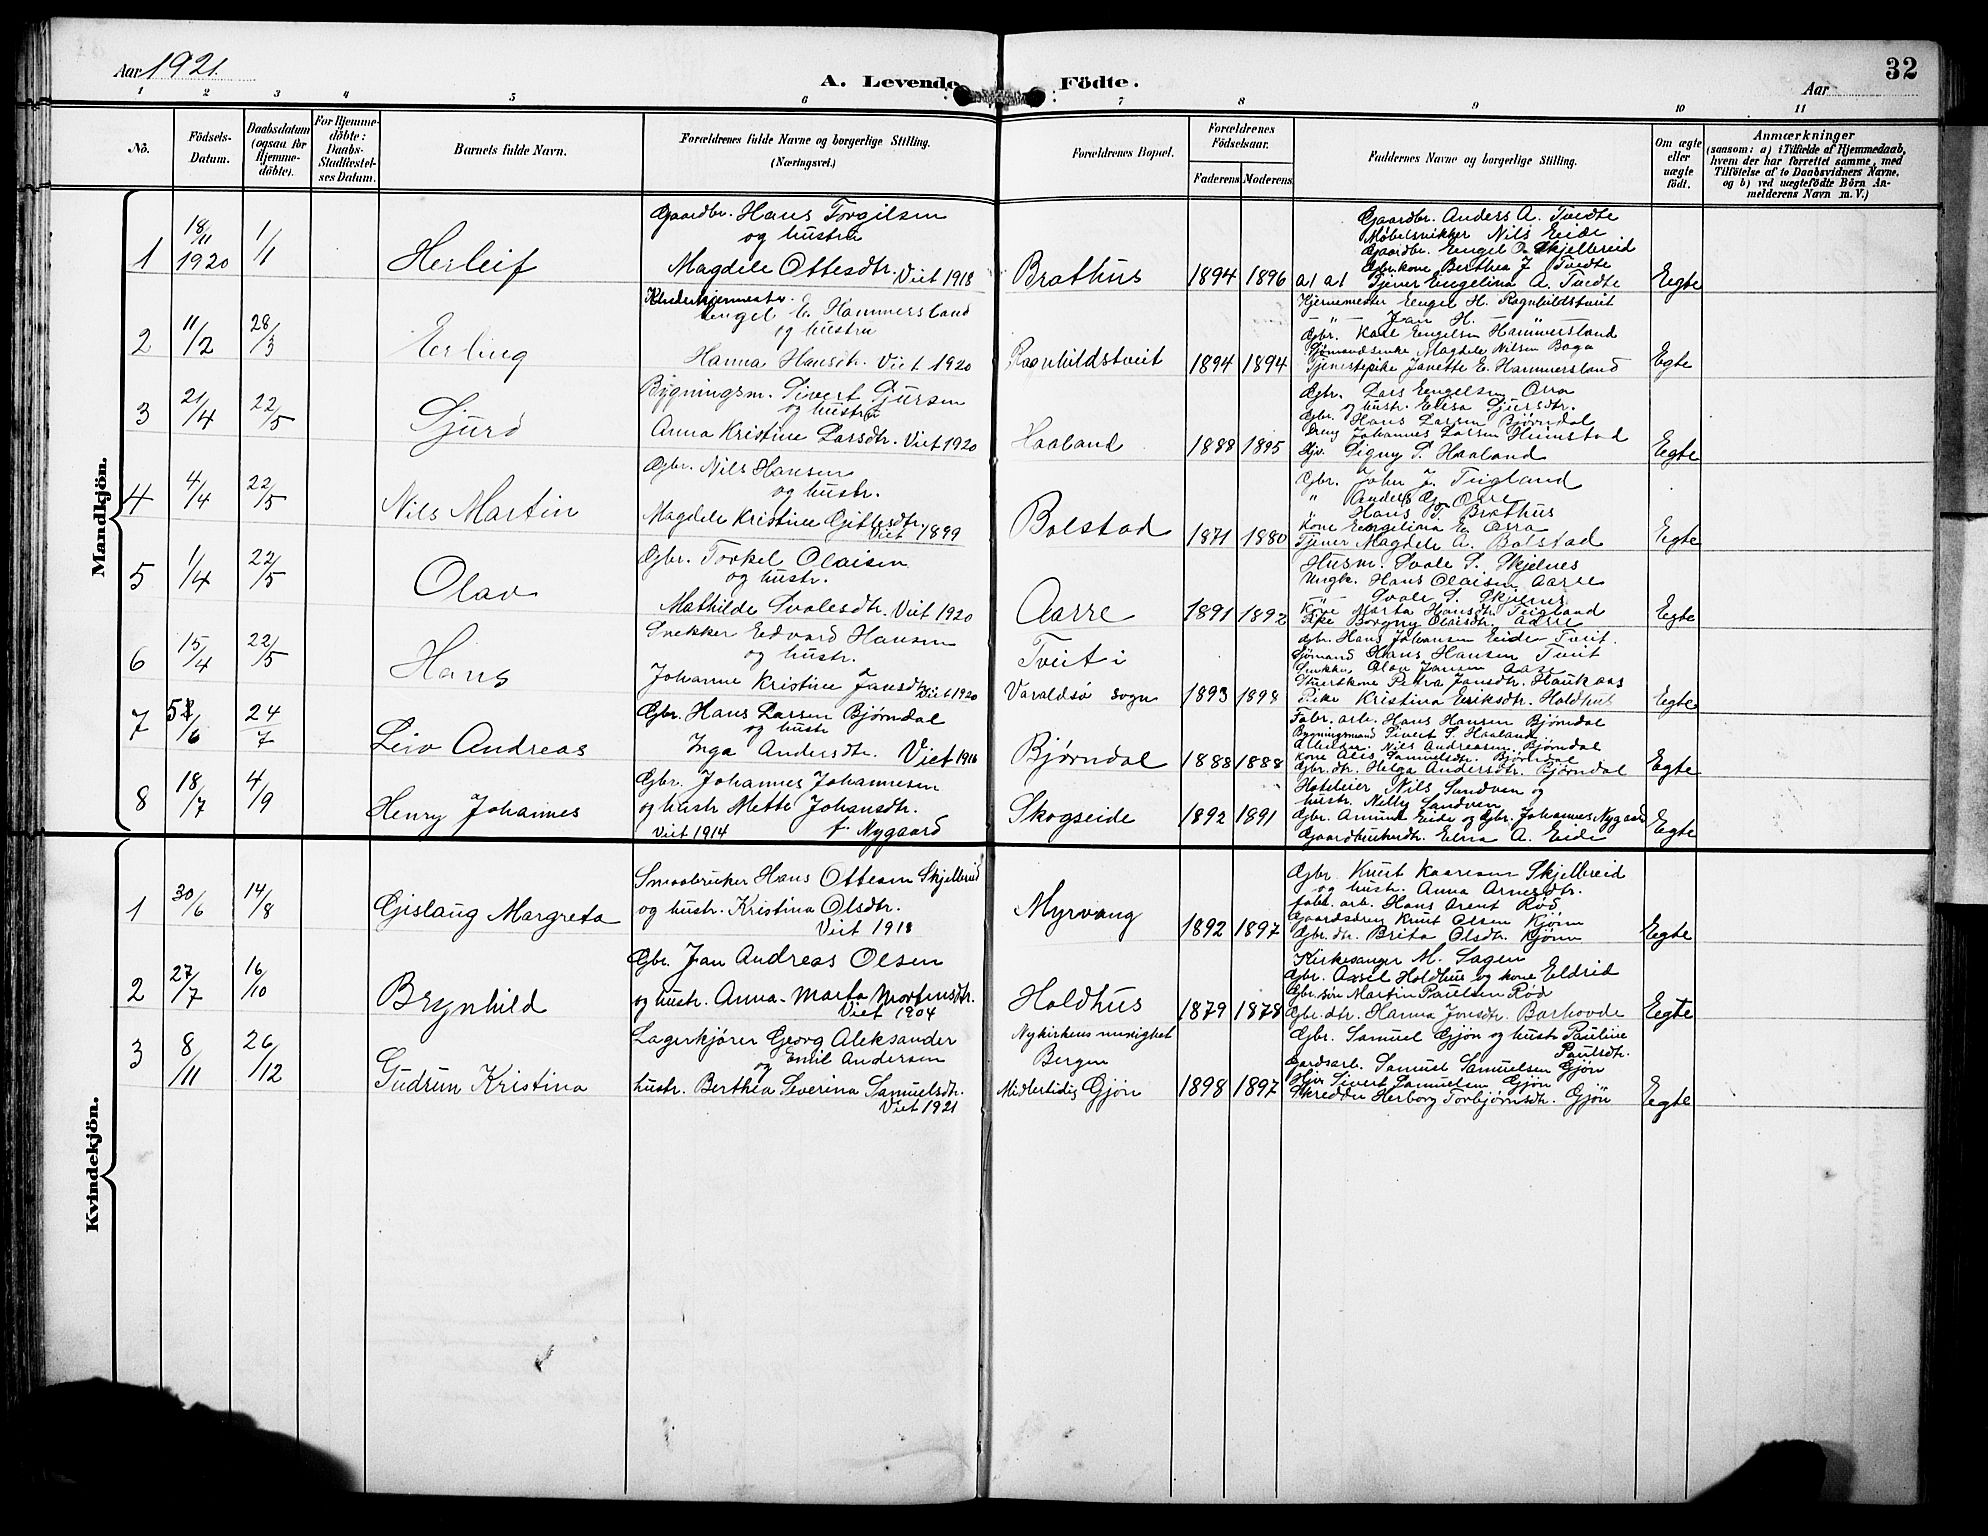 Aar 1921.
A. Levende Födte.
Aar
32
1 2 3 4 5 6 7 8 9 10 11
No.
Födsels-Datum.
Daabsdatum (ogsaa for Hjemme-döbte).
For Hjemme-döbte: Daabs-Stadfæstel-ses Datum.
Barnets fulde Navn.
Forældrenes fulde Navne og borgerlige Stilling. (Næringsvei.)
Forældrenes Bopæl.
Forældrenes Födselsaar.
Faderens Moderens
Faddernes Navne og borgerlige Stilling.
Om ægte eller uægte födt.
Anmærkninger
(saasom: a) i Tilfælde af Hjemmedaab, hvem der har forrettet samme, med Tilföielse af to Daabsvidners Navne, og b) ved uægtefödte Börn An-melderens Navn m. V.)
Mandkjön.
1 18/11 1920 1/1 Herleif
Gaardbr. Hans Torgilsen
og hustru
Magdele Ottesdtr. Viet 1918
Brathus 1894 1896
Gaardbr. Anders A. Tvedte
Møbelsnikker Nils Eide
Gaardbr. Engel O. Skjelbreid
Gbr.kone Berthea J. Tvedte
Tjener Engelina A. Tvedte
Egte
2 11/2 28/3 Erling
Engel E. Hammersland
og hustru
Hanna Hansdtr. Viet 1920
Ragnhildstveit 1894 1894
Kjernemester Engel H. Ragnhildstveit
— " — Jan H. —
Gbr. Karl Engelsen Hammersland
Magdele Nilsen Baga
Tjenestepike Janette E. Hammersland
Egte
3 21/4 22/5 Sjurd
Bygningsm. Sivert Sjursen
og hustru
Anna Kristine Larsdtr. Viet 1920
Haaland 1888 1895
Gbr. Lars Engelsen Orra
og hustr. Elisa Sjursdtr.
Gbr. Hans Larsen Bjørndal
Dreng Johannes Larsen
Signy S. Haaland
Egte
4 4/4 22/5 Nils Martin
Gbr. Nils Hansen
og hustr.
Magdele Kristine Gittesdtr.
Viet 1899
Bolstad 1871 1880
Gbr. John J. Tigland
" Anders G.
" Hans T. Brathus
Kone Engelina E. Orra
Tjener Magdele A. Bolstad
Egte
5 1/4 22/5 Olav
Gbr. Torkel Olaisen
og hustr.
Mathilde Svalesdtr. Viet 1920
Aarre 1891 1892
Husm. Svale S. Skjelnes
Ungk. Hans Olaisen Aarre
— " — Svale S. Skjelnes
Kone Marta Hansdtr. Teigland
Pike Borgny Olaisdtr. Aarre
Egte
6 15/4 22/5 Hans
Snekker Edvard Hansen
og hustr.
Johanne Kristine Jansdtr. Viet 1920
Tveit i
Varaldsø sogn 1893 1898
Gbr. Hans Johansen Eide Tveit.
Sjømand Hans Hansen Tveit
Olav Jansen Aase
Petra Jansdtr. Haukaas
Pike Kristina Eriksdtr. Holdhus
Egte
7 24/7 Leiv Andreas
Gbr. Hans Larsen Bjørndal
og hustr
Inga Andersdtr. Viet 1916
Bjørndal 1888 1888
Fabr. arb. Hans Hansen Bjørndal
Bygningsmand Sivert S. Haaland
Arbeider Nils Andreasen Bjørndal
Kone Alis Samuelsdtr. Bjørndal
Gbr. dtr. Helga Andersdtr. Bjørndal
Egte
8 18/7 4/9 Henry Johannes
Gbr. Johannes Johannesen
og hustr Mette Johansdtr.
Viet 1914 f. Nygaard
Skogseide 1892 1891
Hoteleier Nils Sandven og
hustr. Nelly Sandven
Gbr. Amund Eide og Gbr. Johannes Nygaard
Elna A. Eide
Egte
Kvindekjön.
1 30/6 14/8 Gislaug Margreta
Smaabruker Hans Ottesen Skjelbreid
og hustr. Kristina Olsdtr.
Viet 1918
Myrvang 1892 1897
Gbr. Knut Kaaresen Skjelbreid
og hustr. Anna Arnesdtr.
fabr. arb. Hans Arent Rød
Gaardsdreng Knut Olsen Kjønn
Gbr. dtr. Brita Olsdtr. Kjønn
Egte
2 27/7 16/10 Brynhild
Gbr. Jan Andreas Olsen
og hustr. Anna-Marta Mortensdtr.
Viet 1904
Holdhus 1879 1878
Kirkesanger M. Sagen
Gbr. Axsel Holdhus og kone Eldrid
Gbr. søn Martin Paulsen Rød
Gbr. dtr. Hanna Jonsdtr. Barhovde
Egte
3 8/11 26/12 Gudrun Kristina
Lagerkjører Georg Aleksander
Emil Andersen
og
hustr. Berthea Severina Samuelsdtr.
Viet 1921
Nykirkens menighet
Bergen
Midlertidig Gjøn 1898 1897
Gbr. Samuel Gjøn og hustr Pauline
Paulsdtr.
Gardsarb. Samuel Samuelsen Gjøn
Sivert Samuelsen Gjøn
Herborg Torbjørnsdtr. Gjön
Egte